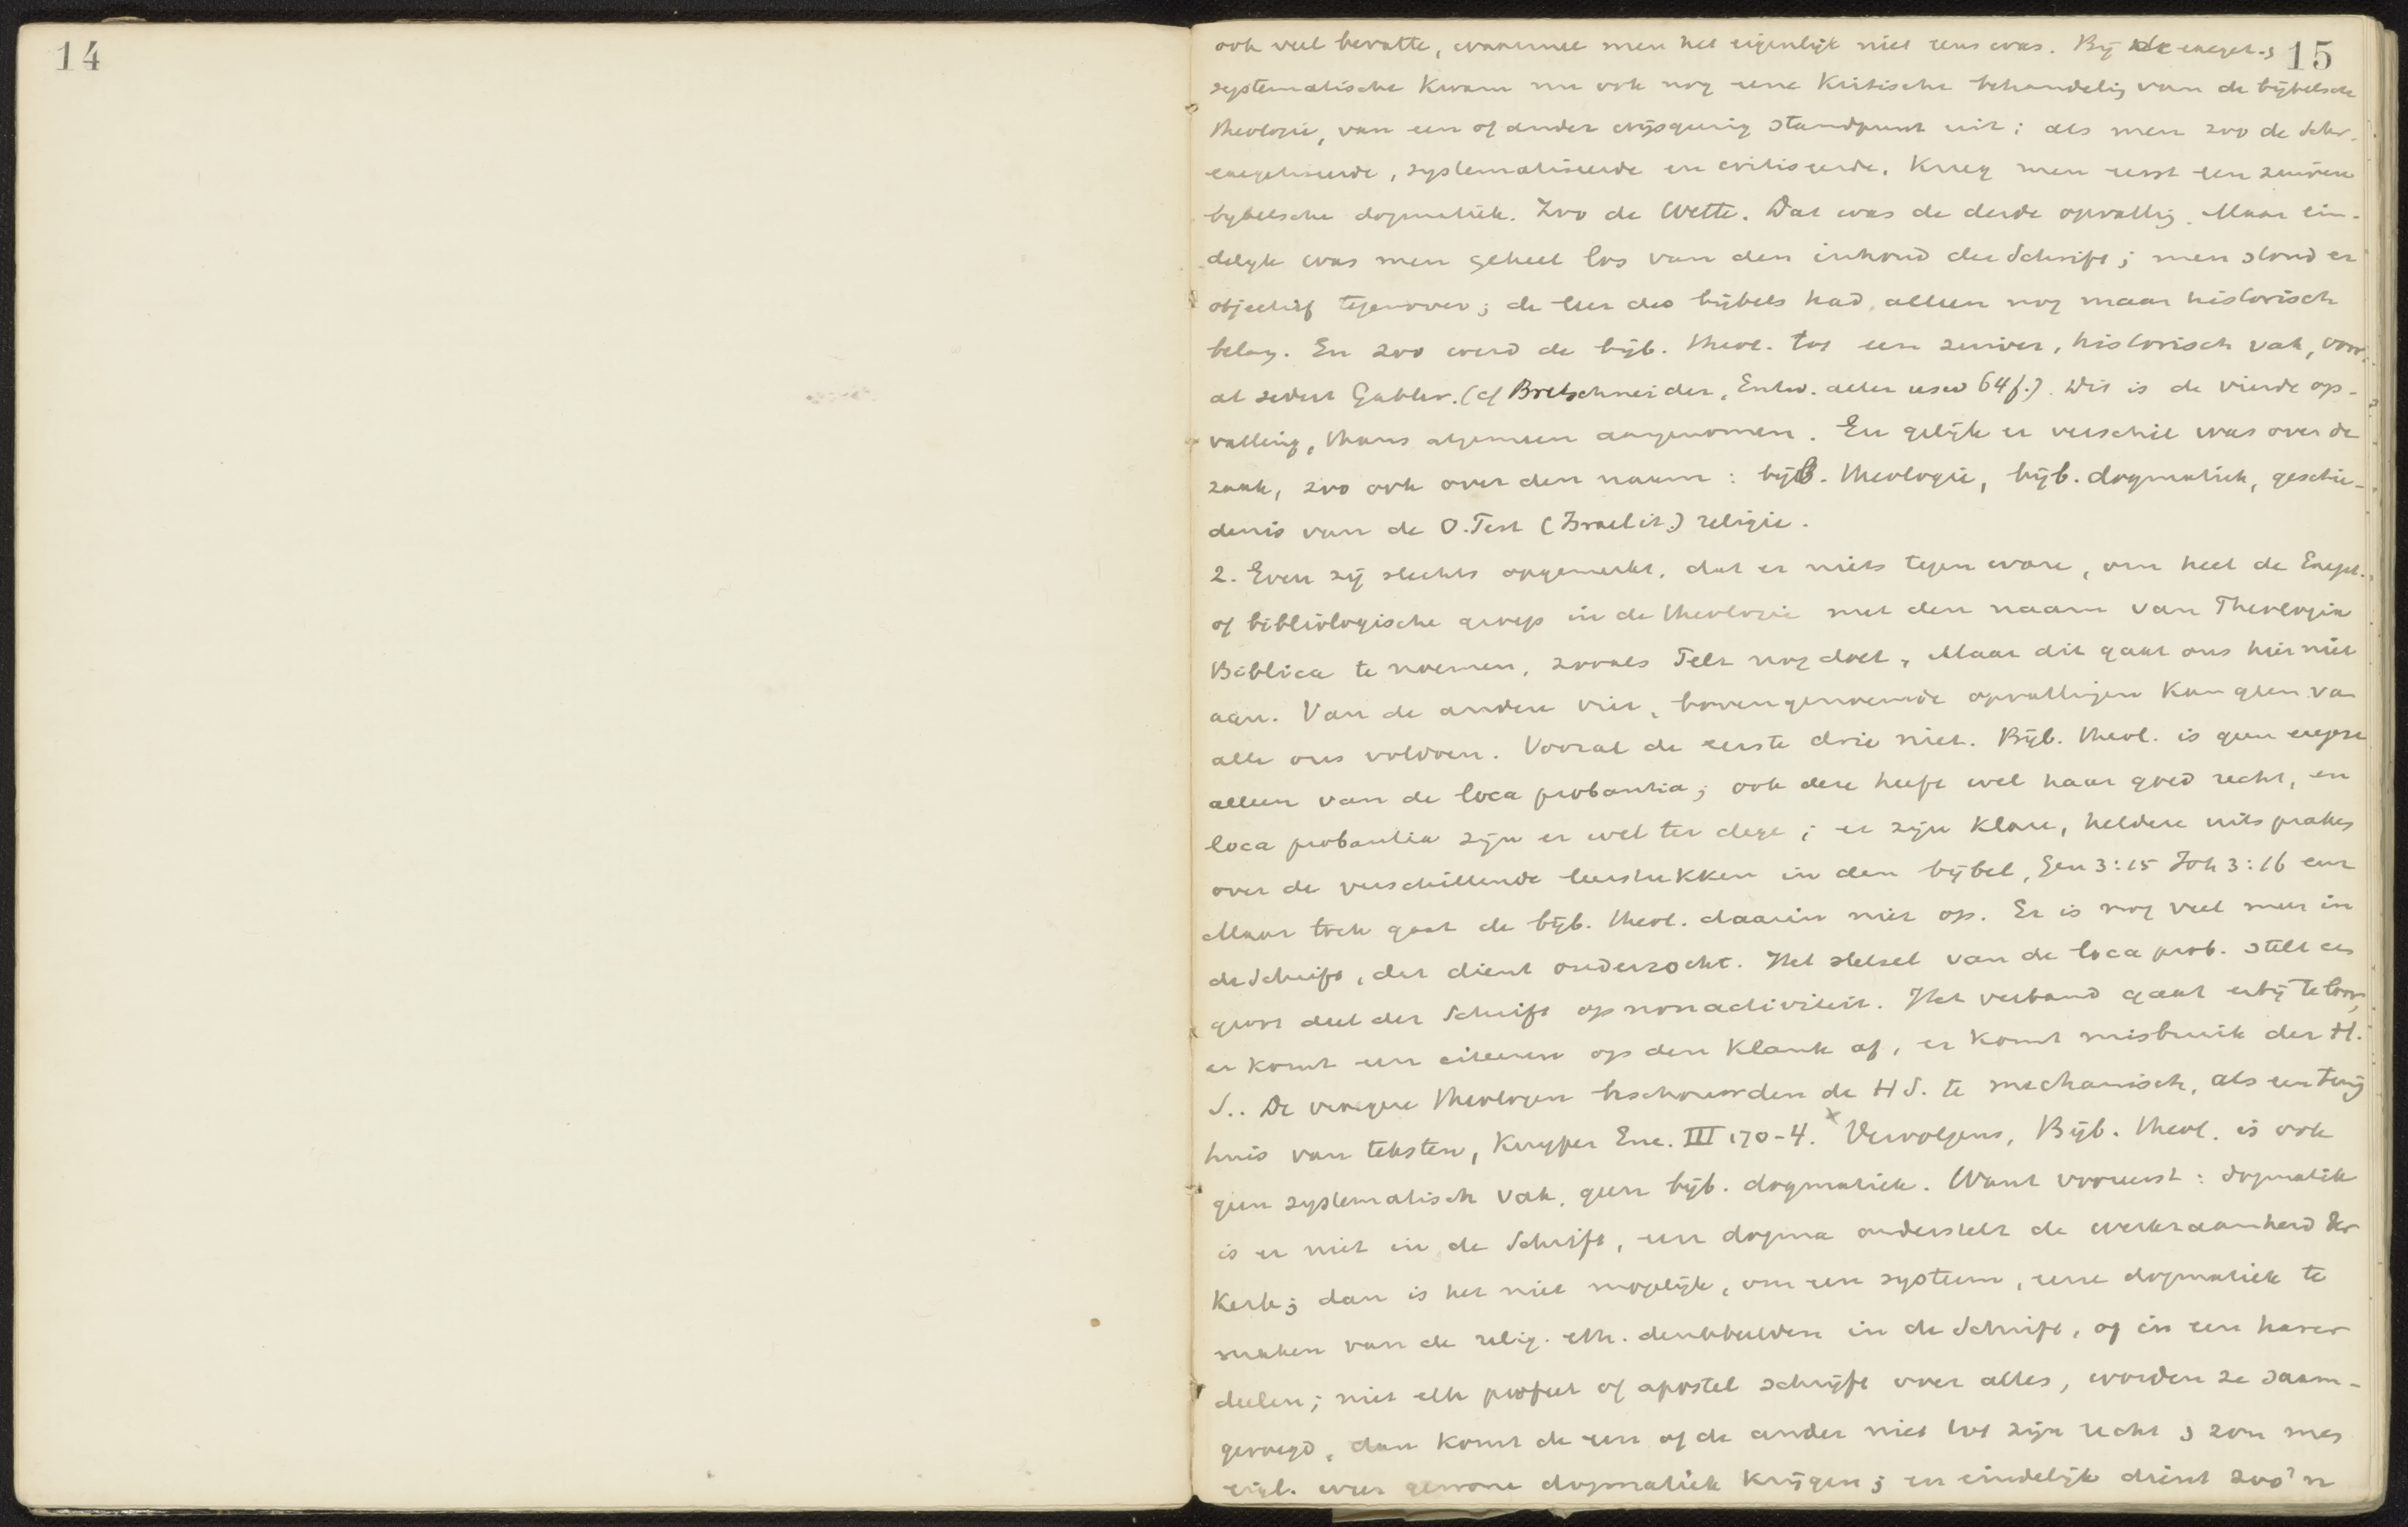 14
15
ook veel bevatte, waarmee men het eigenlijk niet eens was. Bij de exeget. &
systematische kwam nu ook nog eene kritische behandelig van de bijbelsche
theologie, van een of ander wijsgeerig standpunt uit; als men zoo de Schr.
exegetiseerde, systematiseerde en critiseerde, kreeg men eerst een zuivere
bybelsche dogmatiek. Zoo de Wette. Dat was de derde opvattig. Maar ein-
delyk was men geheel los van den inhoud der Schrift; men stond er
objectief tegenover; de leer des bijbels had alleen nog maar historisch
belang. En zoo werd de bijb. theol. tot een zuiver, historisch vak, voor-
al sedert Gabler. (cf Bretschneider, Entw. aller usw 64f.). Dit is de vierde op-
vatting, thans algemeen aangenomen. En gelijk er verschil was over de
zaak, zoo ook over den naam: bijb. theologie, bijb. dogmatiek, geschie-
denis van de O. Test (Israelit.) religie.
2. Even zij slechts opgemerkt, dat er niets tegen ware, om heel de Exeget.
of bibliologische groep in de theologie met den naam van Theologia
Biblica te noemen, zooals Pelt nog doet. Maar dit gaat ons hier niet
aan. Van de andere vier, bovengenoemde opvattingen kan geen van
alle ons voldoen. Vooral de eerste drie niet. Bijb. theol. is geen exegese
alleen van de loca probantia; ook deze heeft wel haar goed recht, en
loca probantia zijn er wel ter dege; er zijn klare, heldere uitspraken
over de verschillende leerstukken in den bijbel, Gen 3:15 Joh 3:16 enz
Maar toch gaat de bijb. theol. daarin niet op. Er is nog veel meer in
de Schrift, dat dient onderzocht. Het stelsel van de loca prob. stelt een
groot deel der Schrift op nonactiviteit. Het verband gaat erbij teloor,
er komt een citeeren op den klank af, er komt misbruik der H.
S.. De vroegere theologen beschouwden de H S. te mechanisch, als een tuig
huis van teksten, Kuyper Enc. III 170-4. x Vervolgens, Bijb. theol. is ook
geen systematisch vak, geen bijb. dogmatiek. Want vooreerst: dogmatiek
is er niet in de Schrift, een dogma onderstelt de werkzaamheid der
Kerk; dan is het niet mogelijk, om een systeem, eene dogmatiek te
maken van de relig. eth. denkbeelden in de Schrift, of in een harer
deelen; niet elk profeet of apostel schrijft over alles, worden ze saam-
gevoegd, dan komt de een of de ander niet tot zijn recht & zou men
eigl. weer gewone dogmatiek krijgen; en eindelijk dient zoo'n